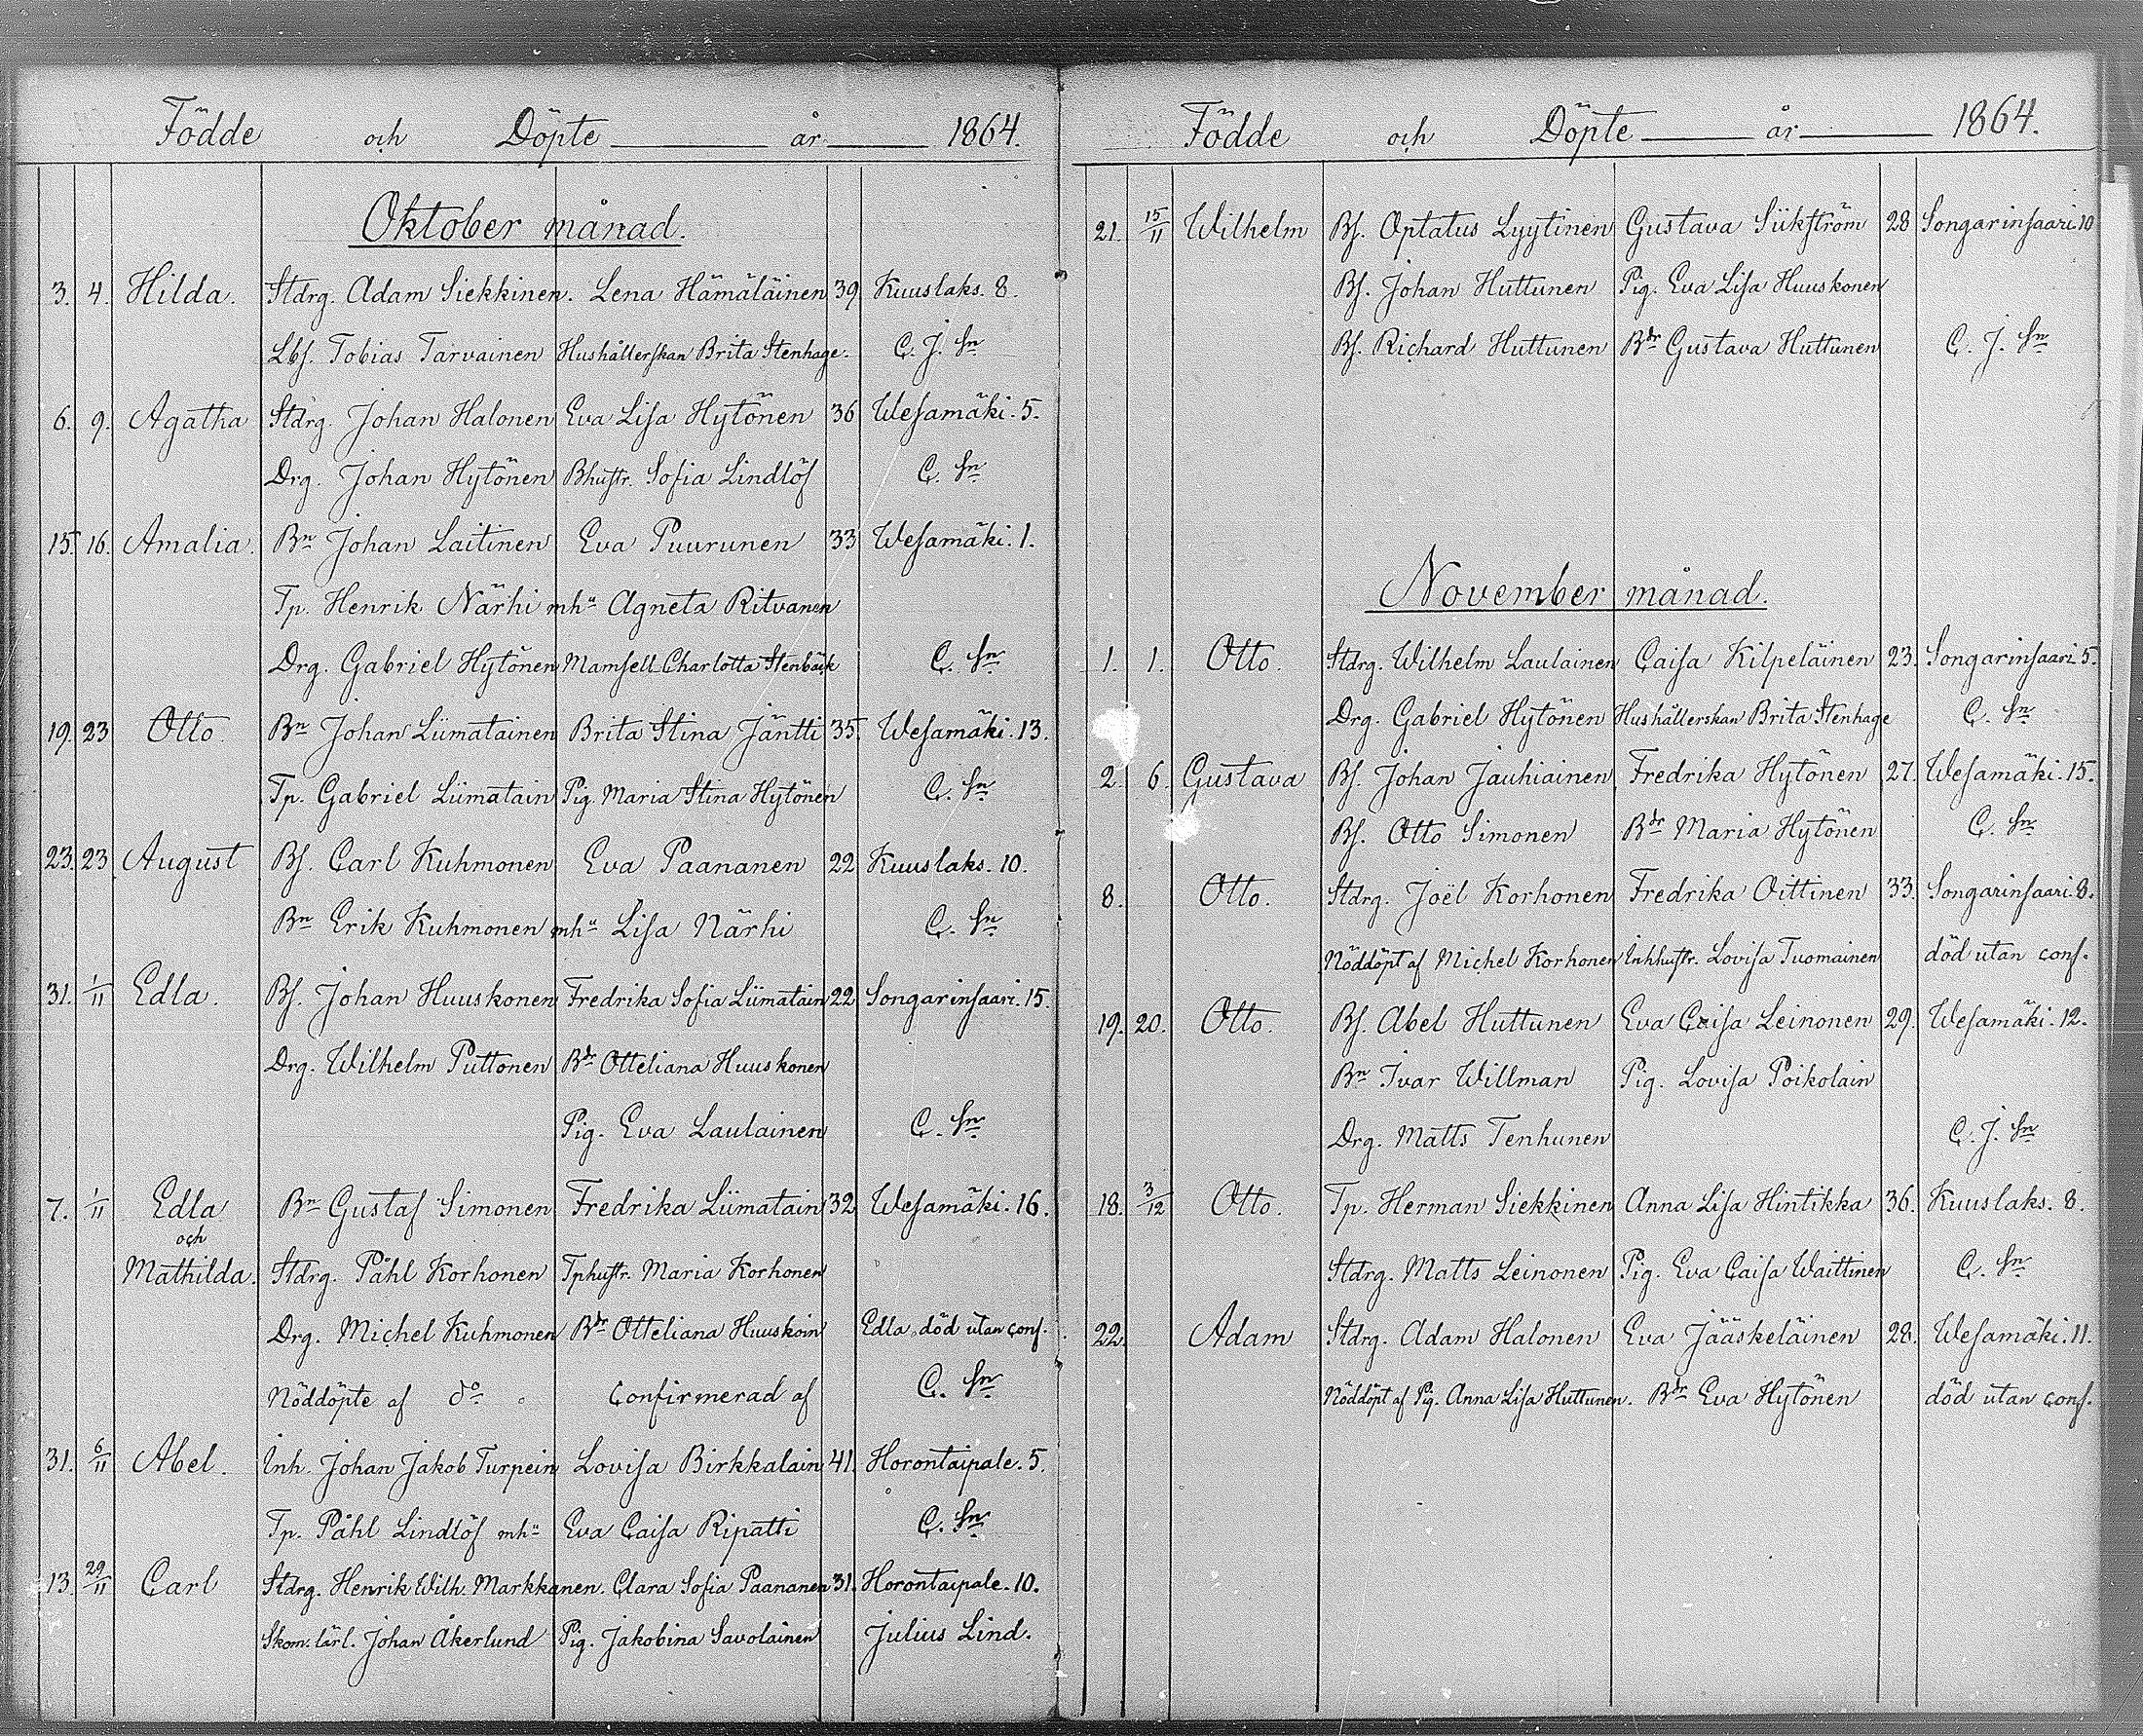 Födde och Döpte år 1864.
Oktober månad.
3. 4. Hilda. Stdrg. Adam Siekkinen. Lena Hämäläinen 39 Kuuslaks. 8.
Lbs. Tobias Tarvainen Hushållerskan Brita Stenhage. C. J. Sn
6. 9. Agatha Stdrg. Johan Halonen Eva Lisa Hytönen 36 Wesamäki. 5.
Drg. Johan Hytönen Bhustr. Sofia Lindlöf C. Sn
15. 16. Amalia. Bn Johan Laitinen Eva Puurunen 33 Wesamäki. 1.
Tp. Henrik Närhi mhu Agneta Ritvanen
Drg. Gabriel Hytönen Mamsell Charlotta Stenbäck C. Sn
19. 23 Otto Bn Johan Liimatainen Brita Stina Jäntti 35. Wesamäki. 13.
Tp. Gabriel Liimatain Pig. Maria Stina Hytönen C. Sn
23. 23 August Bs. Carl Kuhmonen Eva Paananen 22 Kuuslaks. 10.
Bn Erik Kuhmonen mhu Lisa Närhi C. Sn
31. 1/11 Edla. Bs. Johan Huuskonen Fredrika Sofia Liimatain 22 Songarinsaari. 15.
Drg. Wilhelm Puttonen Bdr Otteliana Huuskonen
Pig. Eva Laulainen C. Sn
7. 1/11 Edla Bn Gustaf Simonen Fredrika Liimatain 32 Wesamäki. 16.
och
Mathilda. Stdrg. Påhl Korhonen Tphustr. Maria Korhonen
Drg. Michel Kuhmonen Bdr Otteliana Huuskoin Edla död utan conf.
Nöddöpte af do Confirmerad af C. Sn
31. 6/11 Abel. Inh. Johan Jakob Turpein Lovisa Birkkalain 41. Horontaipale. 5.
Tp. Påhl Lindlöf mhu Eva Caisa Ripatti C. Sn
13. 29/11 Carl Stdrg. Henrik Wilh. Markkanen. Clara Sofia Paananen 31. Horontaipale. 10.
Skom. lärl. Johan Åkerlund Pig. Jakobina Savolainen Julius Lind.
Födde och Döpte år 1864.
21. 15/11 Wilhelm Bs. Optatus Lyytinen Gustava Sükström 28 Songarinsaari 10
Bs. Johan Huttunen Pig. Eva Lisa Huuskonen
Bs. Richard Huttunen Bdr Gustava Huttunen C. J. Sn
November månad.
1. 1. Otto. Stdrg. Wilhelm Laulainen Caisa Kilpeläinen 23. Songarinsaari 5.
Drg. Gabriel Hytönen Hushållerskan Brita Stenhage C. Sn
2. 6. Gustava Bs. Johan Jauhiainen Fredrika Hytönen 27. Wesamäki. 15.
Bs. Otto Simonen Bdr Maria Hytönen C. Sn
8. Otto. Stdrg. Joël Korhonen Fredrika Oittinen 33. Songarinsaari. 8.
Nöddöpt af Michel Korhonen Inhhustr. Lovisa Tuomainen död utan conf.
19. 20. Otto. Bs. Abel Huttunen Eva Caisa Leinonen 29. Wesamäki. 12.
Bn Ivar Willman Pig. Lovisa Poikolain
Drg. Matts Tenhunen C. J. Sn
18. 3/12 Otto. Tp. Herman Siekkinen Anna Lisa Hintikka 36. Kuuslaks. 8.
Stdrg. Matts Leinonen Pig. Eva Caisa Waittinen C. Sn
22. Adam Stdrg. Adam Halonen Eva Jääskeläinen 28. Wesamäki. 11.
Nöddöpt af Pig. Anna Lisa Huttunen. Bdr Eva Hytönen död utan conf.